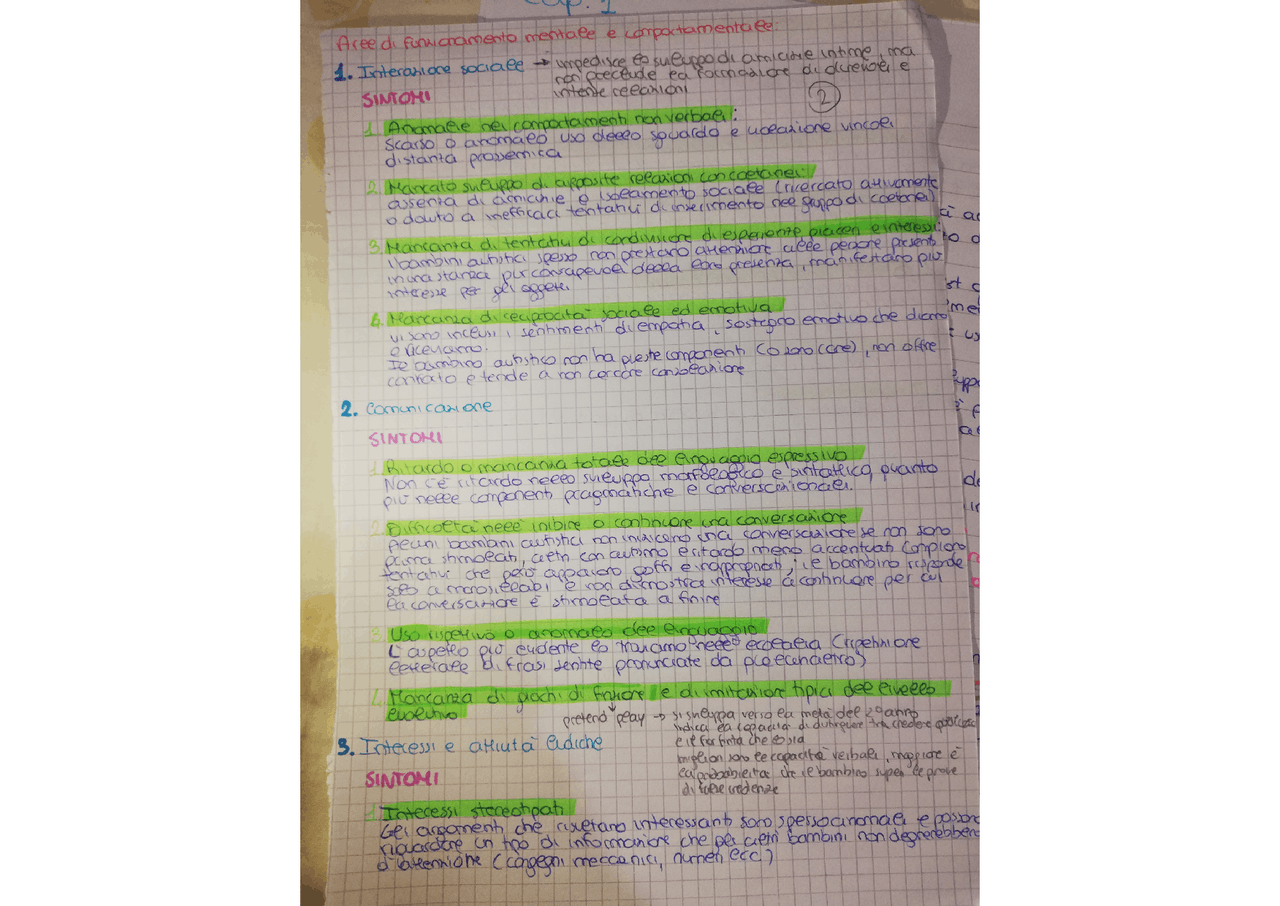 Cap. 1
Aree di funzionamento mentale e comportamentale:
1. Interazione sociale → impedisce lo sviluppo di amicizie intime, ma
non preclude la formazione di durevoli e
intense relazioni
SINTOMI
2
1. Anomalie nei comportamenti non verbali:
Scarso o anomalo uso dello sguardo e vincoli
distanza prossemica
2. Mancato sviluppo di apposite relazioni con coetanei:
assenza di amicizie e isolamento sociale (ricercato attivamente
o dovuto a inefficaci tentativi di inserimento nel gruppo di coetanei)
3. Mancanza di tentativi di condivisione di esperienze piaceri e interessi:
i bambini autistici spesso non prestano attenzione alle persone presenti
in una stanza pur consapevoli della loro presenza, manifestano più
interesse per gli oggetti.
4. Mancanza di reciprocità sociale ed emotiva
vi sono inclusi i sentimenti di empatia, sostegno emotivo che diamo
o riceviamo.
Il bambino autistico non ha queste componenti (o sono rare), non offre
contatto e tende a non cercare consolazione
2. Comunicazione
SINTOMI
1. Ritardo o mancanza totale del linguaggio espressivo
Non c'è ritardo nello sviluppo morfologico e sintattico, quanto
più nelle componenti pragmatiche e conversazionali.
2. Difficoltà nell' inibire o continuare una conversazione
Alcuni bambini autistici non iniziano una conversazione se non sono
prima stimolati, altri con autismo e ritardo meno accentuati compiono
tentativi che però appaiono goffi e inappropriati; il bambino risponde
solo a monosillabi e non dimostra interesse a continuare per cui
la conversazione è stimolata a finire
3. Uso ripetitivo o anomalo del linguaggio
L'aspetto più evidente lo troviamo nell' ecolalia (ripetizione
letterale di frasi sentite pronunciate da altro)
4. Mancanza di giochi di finzione e di imitazione tipici del livello
evolutivo
pretend play → si sviluppa verso la metà del 2° anno
indica la capacità di distinguere tra credere qualcosa
e il far finta che lo sia
migliori sono le capacità verbali, maggiore è
la probabilità che il bambino superi le prove
di false credenze
3. Interessi e attività ludiche
SINTOMI
1. Interessi stereotipati
Gli argomenti che risultano interessanti sono spesso anomali e possono
riguardare un tipo di informazione che per altri bambini non degnerebbero
d'attenzione (congegni meccanici, numeri ecc.)